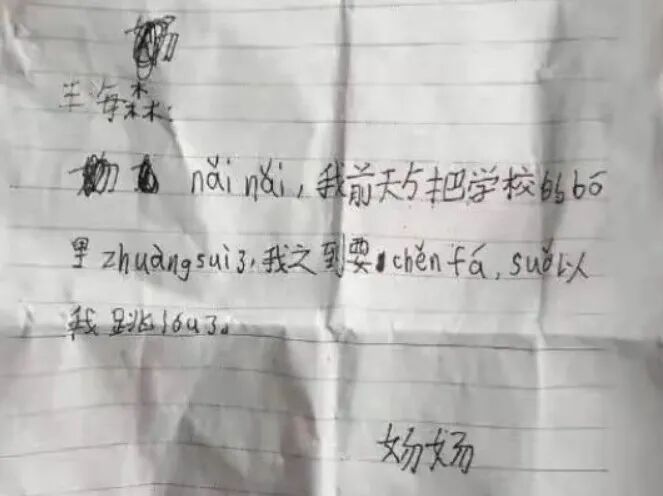 王海森:
nǎi nǎi，我前天与把学校的bō
里zhuàng suì了，我之到要chěn fá，suǒ以
我跳lóu了。
妫妫